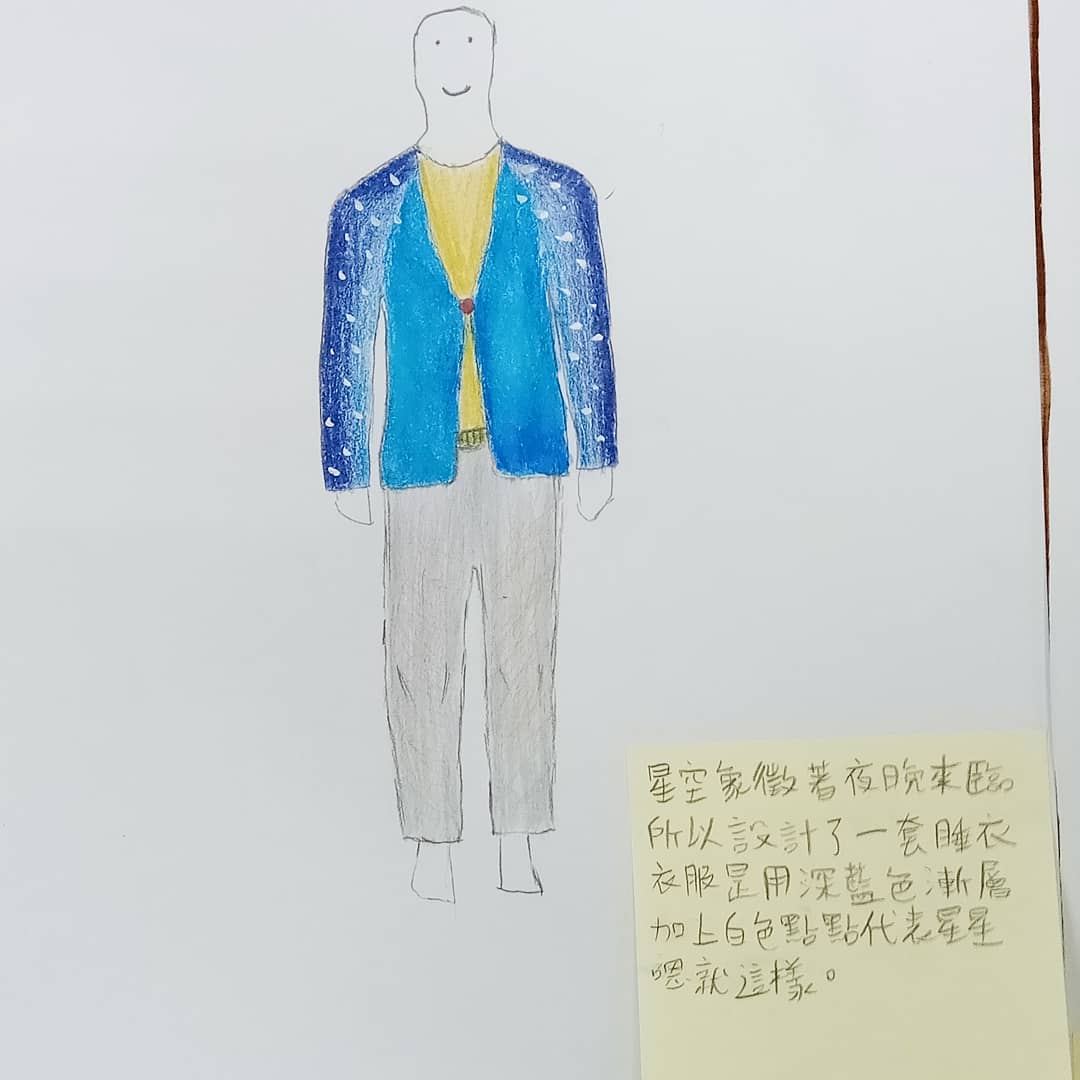 星空象徵著夜晚來臨
所以設計了一套睡衣
衣服是用深藍色漸層
加上白色點點代表星星
嗯就這樣。